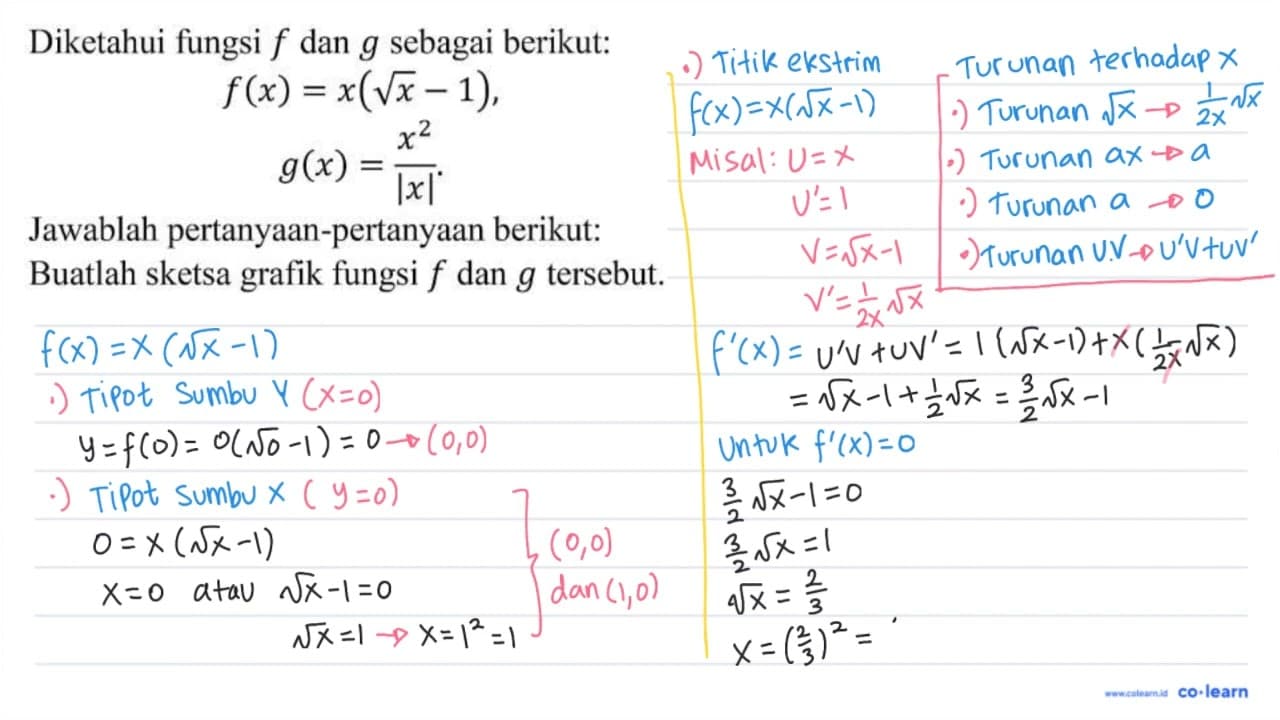 Diketahui fungsi f dan g sebagai berikut:
f(x) = x(√x − 1),
g(x) = x²/|x|.
Jawablah pertanyaan-pertanyaan berikut:
Buatlah sketsa grafik fungsi f dan g tersebut.
f(x) = x (√x - 1)
•) Tipot Sumbu Y (x=0)
y = f(0) = 0(√0 - 1) = 0 → (0,0)
•) Tipot Sumbu X ( y=0)
0 = x (√x - 1)
x=0 atau √x - 1 = 0
√x = 1 → x = 1² = 1
(0,0)
dan (1,0)
•) Titik ekstrim
f(x) = x(√x - 1)
Misal: U = x
U' = 1
V = √x - 1
V' = 1/2x √x
Turunan terhadap x
•) Turunan √x → 1/2x √x
•) Turunan ax → a
•) Turunan a → 0
•) Turunan U.V → U'V + UV'
f'(x) = U'V + UV' = 1 (√x - 1) + x (1/2x √x)
= √x - 1 + 1/2 √x = 3/2 √x - 1
Untuk f'(x) = 0
3/2 √x - 1 = 0
3/2 √x = 1
√x = 2/3
x = (2/3)² =
www.colearn.id co·learn